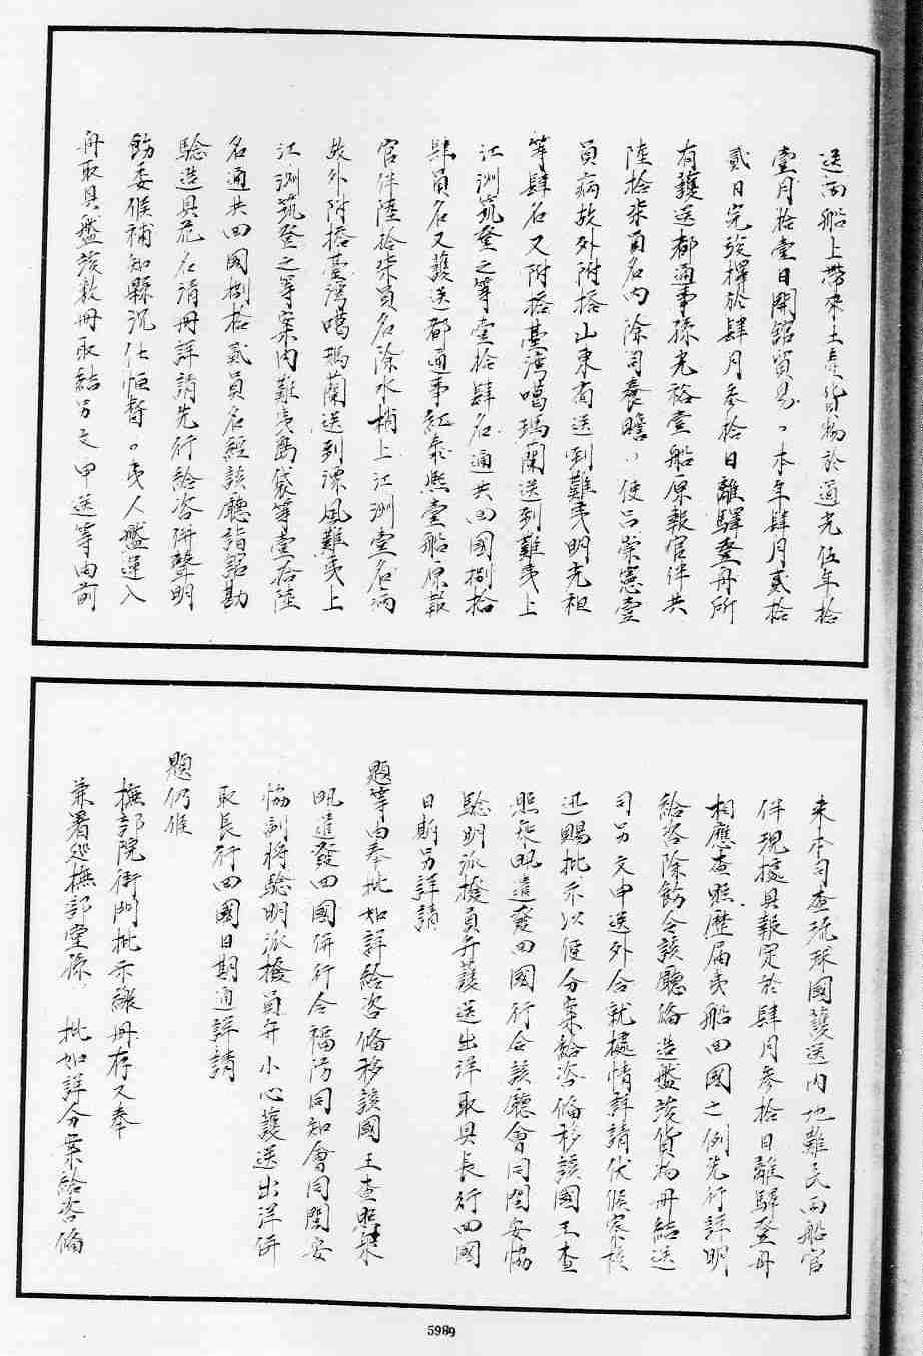 送兩船上帶來土產貨物於道光伍年拾
壹月拾壹日開館貿易々本年肆月貳拾
貳日完竣擇於肆月叁拾日離驛登舟所
有護送都通事孫光裕壹船原報官伴共
陸拾柒員名內除司養贍々使呂崇憲壹
員病故外附搭山東省送到難夷明光祖
等肆名又附搭臺灣噶瑪蘭送到難夷上
江洲筑登之等壹拾肆名通共回國捌拾
肆員名又護送都通事紅泰熙壹船原報
官伴陸拾柒員名除水梢上江洲壹名病
故外附搭臺灣噶瑪蘭送到漂風難夷上
江洲筑登之等案內難夷島袋等壹拾陸
名通共回國捌拾貳員名經該廳詣館勘
驗造具花名清冊詳請先行給咨併聲明
飭委候補知縣沉仕恒督々夷人艦運入
舟取具艦該數冊取結另文申送等由前
來本司查琉球國護送內地難民兩船官
伴現據具報定於肆月參拾日離驛登舟
相應查照歷屆夷船回國之例先行詳明
給咨除飭令該廳備造艦該貨物冊結送
司另文申送外合就據情詳請伏候察核
迅賜批示以便分案給咨備移該國王查
照乘汛遣發回國行令該廳會同閩安協
驗明派撥員弁護送出洋取具長行回國
日期另詳請
題等由奉批如詳給咨備移該國王查照乘
汛遣發回國併行令福防同知會同閩安
協副將驗明派撥員弁小心護送出洋併
取長行回國日期通詳請
題仍候
撫部院衙門批示繳冊存又奉
兼署巡撫部堂孫々批如詳分案給咨備
5989